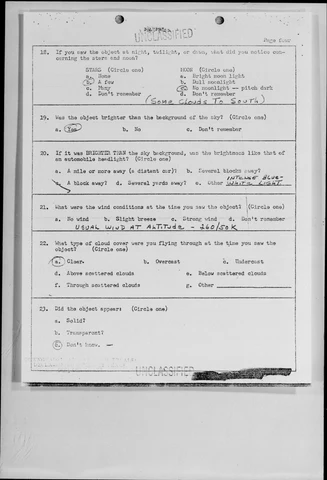 UNCLASSIFIED
Page Four
18. If you saw the object at night, twilight, or dawn, what did you notice concerning the stars and moon?
STARS (Circle one) MOON (Circle one)
a. None a. Bright moon light
b. A few b. Dull moonlight
c. Many c. No moonlight -- pitch dark
d. Don't remember d. Don't remember
(SOME CLOUDS TO SOUTH)
19. Was the object brighter than the background of the sky? (Circle one)
a. Yes b. No c. Don't remember
20. If it was BRIGHTER THAN the sky background, was the brightness like that of
an automobile headlight? (Circle one)
a. A mile or more away (a distant car)? b. Several blocks away?
c. A block away? d. Several yards away? e. Other INTENSE BLUE-
WHITE LIGHT
21. What were the wind conditions at the time you saw the object? (Circle one)
a. No wind b. Slight breeze c. Strong wind d. Don't remember
USUAL WIND AT ALTITUDE - 260/50K
22. What type of cloud cover were you flying through at the time you saw the
object? (Circle one)
a. Clear b. Overcast c. Undercast
d. Above scattered clouds e. Below scattered clouds
f. Through scattered clouds g. Other
23. Did the object appear: (Circle one)
a. Solid?
b. Transparent?
c. Don't know. -
UNCLASSIFIED